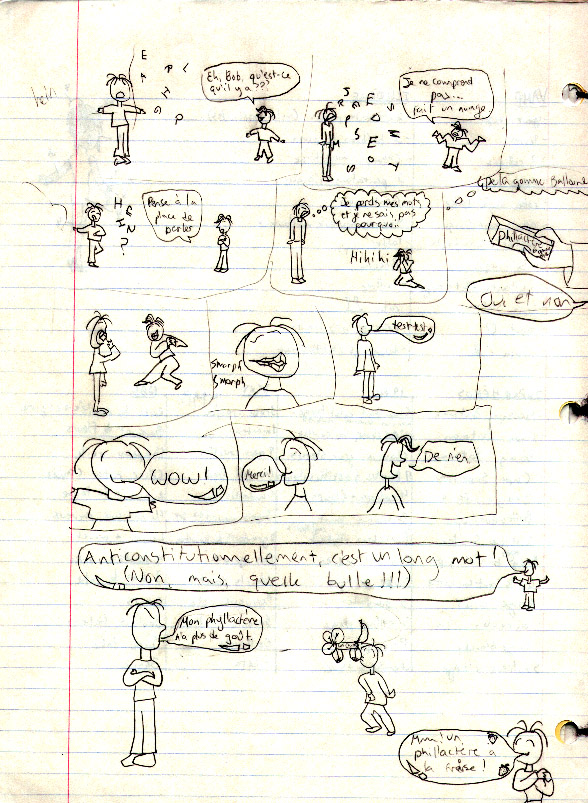 hein
Eh, Bob, qu'est-ce
qu'il y a???
Je ne comprend
pas...
fait un nuage
H
E
I
N
?
Pense à la
place de
parler
Je perds mes mots
et je ne sais pas
pourquoi!
Hihihi
De la gomme Balloune
phillactère
Oui et non
smorph
smorph
test test
WOW!
Merci!
De rien
Anticonstitutionnellement, c'est un long mot!
(Non, mais, quelle bulle!!!)
Mon phyllactère
n'a plus de goût.
Mmm! un
phillactère à
la fraise!